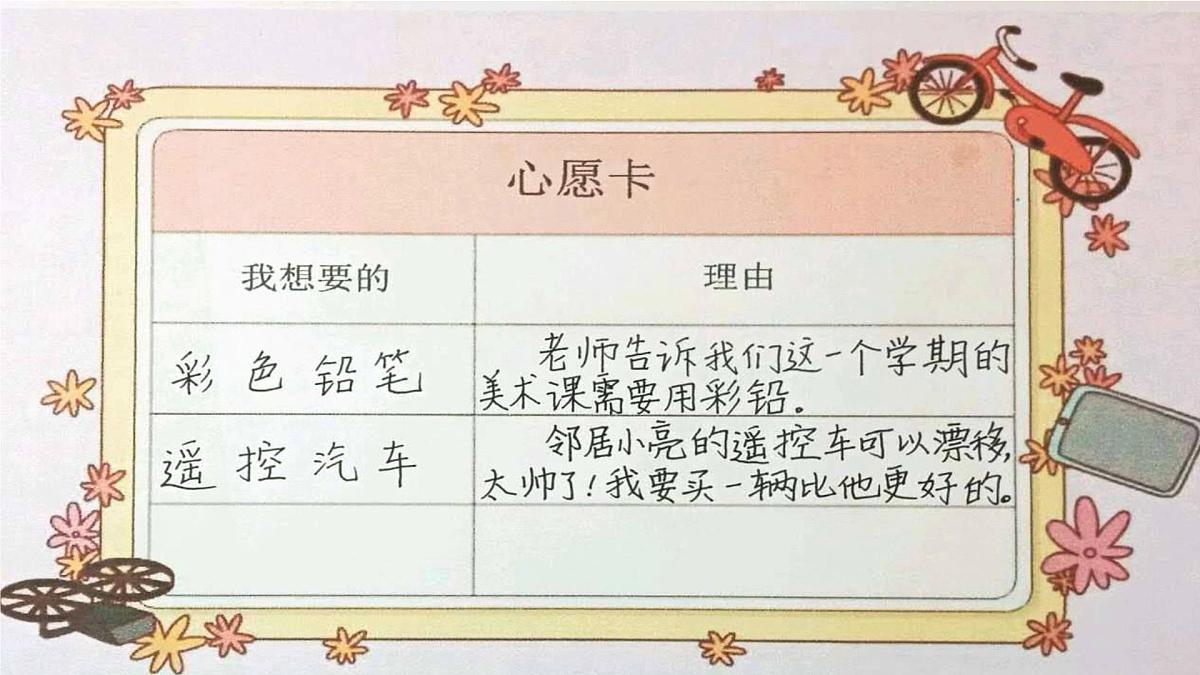 心愿卡
我想要的 理由
彩色铅笔
老师告诉我们这一个学期的
美术课需要用彩铅。
遥控汽车
邻居小亮的遥控车可以漂移,
太帅了!我要买一辆比他更好的。